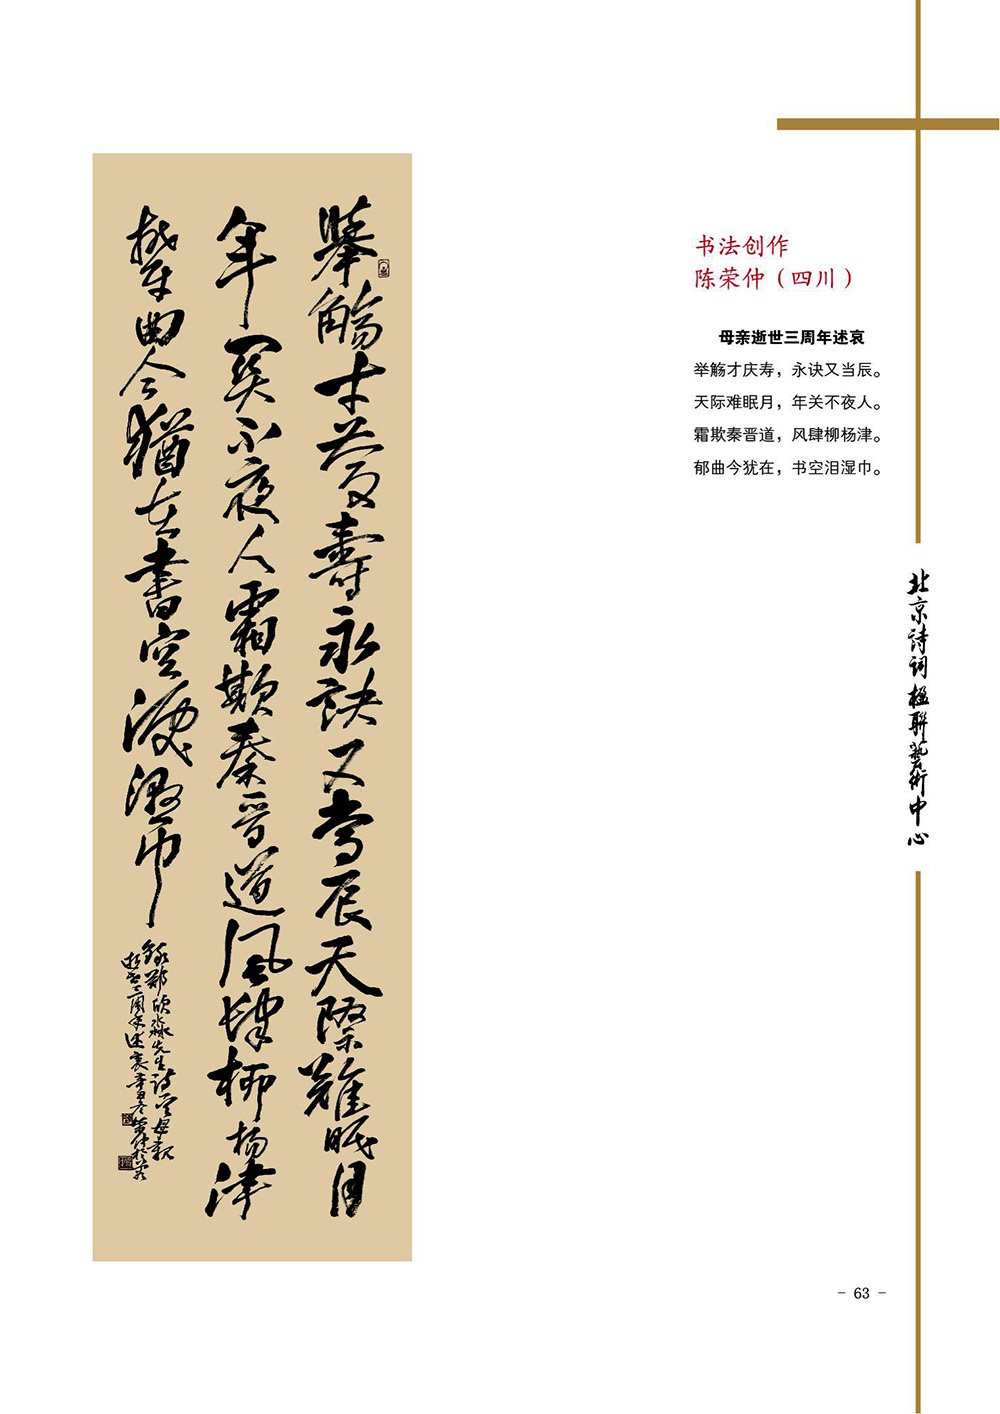 书法创作
陈荣仲（四川）
母亲逝世三周年述哀
举觞才庆寿，永诀又当辰。
天际难眠月，年关不夜人。
霜欺秦晋道，风肆柳杨津。
郁曲今犹在，书空泪湿巾。
舉觴才慶壽永訣又當辰天際難眠月
年關不夜人霜欺秦晉道風肆柳楊津
鬱曲今猶在書空淚濕巾
錄鄭欣淼先生詩定母親
逝世三周年述哀辛丑冬榮仲於蓉
北京詩詞楹聯藝術中心
- 63 -